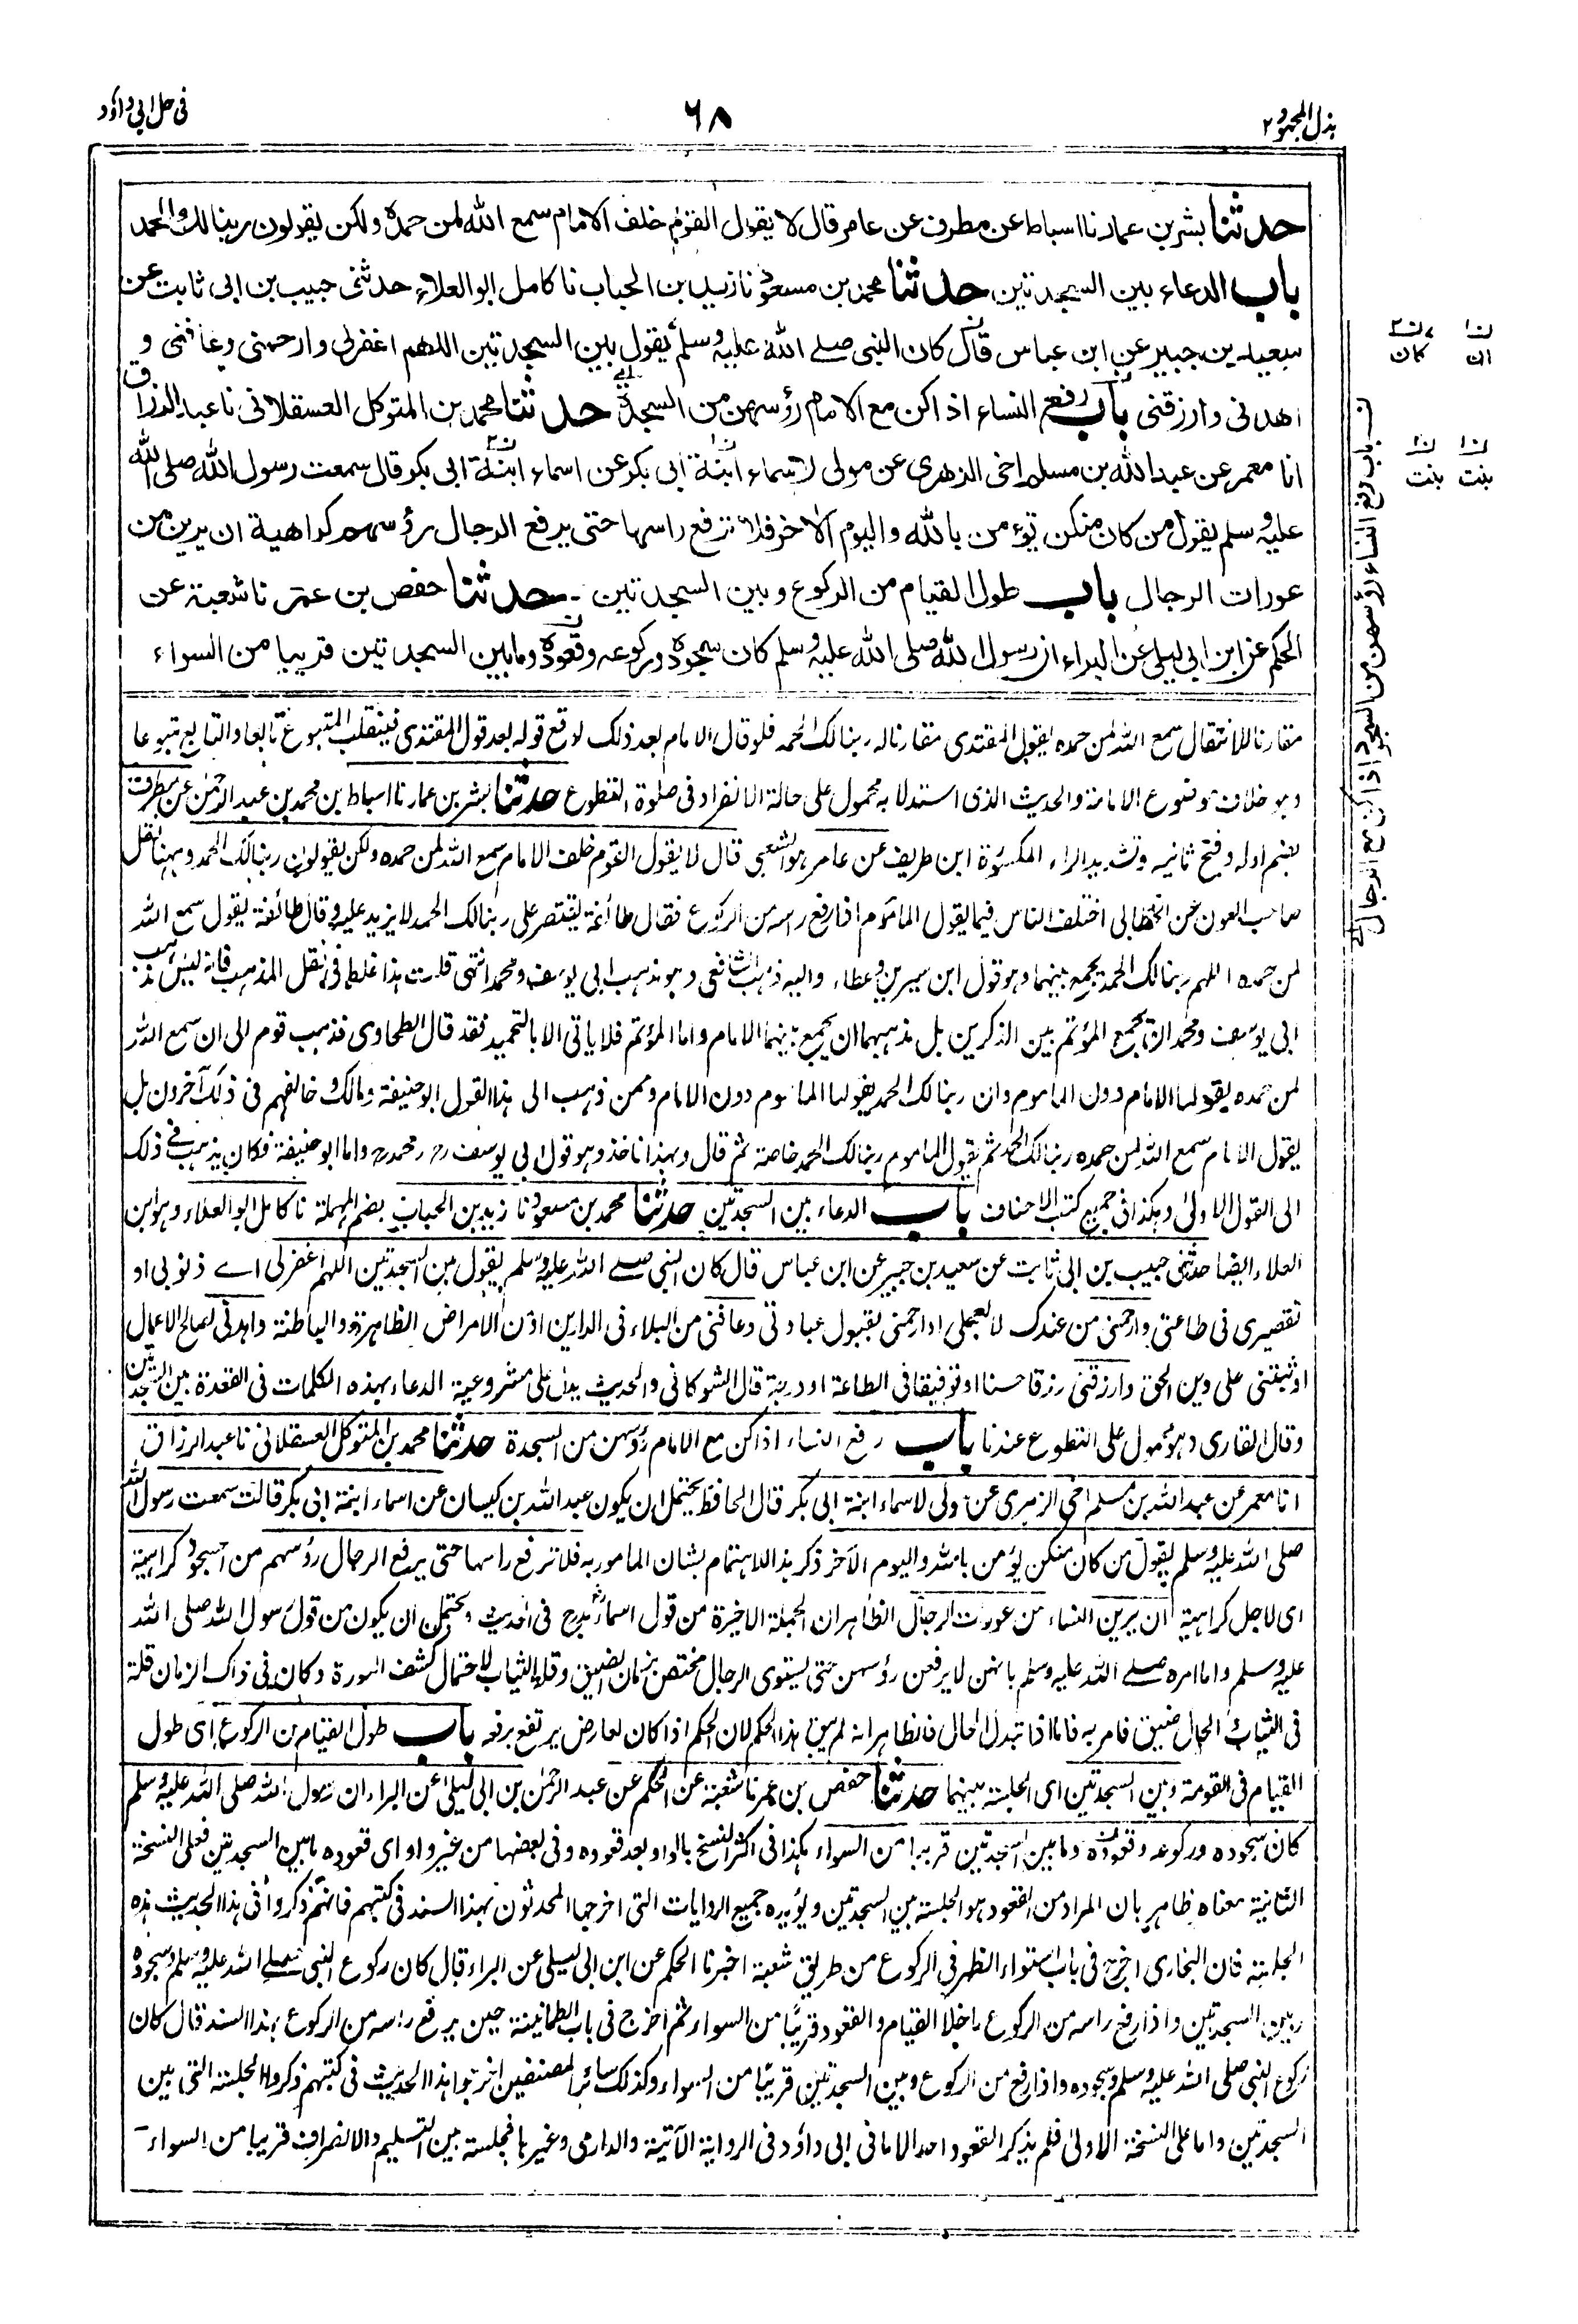 بذل المجهود ٢
٦٨
فی حل ابی داؤد
حدثنا بشر بن عمار نا اسباط عن مطرف عن عامر قال لا یقول القوم خلف الامام سمع الله لمن حمده ولکن یقولون ربنا لك والحمد
باب الدعاء بین السجدتین حدثنا محمد بن مسعود نا زید بن الحباب نا کامل ابو العلاء حدثنی حبیب بن ابی ثابت عن
سعید بن جبیر عن ابن عباس قال کان النبی صلے الله علیہ وسلم یقول بین السجدتین اللهم اغفر لی وارحمنی وعافنی و
اهدنی وارزقنی باب رفع النساء اذا کن مع الامام رؤسهن من السجدة حدثنا محمد بن المتوکل العسقلانی نا عبد الرزاق
انا معمر عن عبد الله بن مسلم اخی الزهری عن مولی لاسماء ابنة ابی بکر عن اسماء ابنة ابی بکر قال سمعت رسول الله صلی الله
علیہ وسلم یقول من کان منکن تؤمن بالله والیوم الاخر فلا ترفع راسها حتی یرفع الرجال رؤسهم کراهیة ان یرین من
عورات الرجال باب طول القیام من الرکوع وبین السجدتین - حدثنا حفص بن عمر نا شعبة عن
الحکم عن ابن ابی لیلی عن البراء ان رسول الله صلی الله علیہ وسلم کان سجوده ورکوعه وقعوده ومابین السجدتین قریبا من السواء
ن١ ان
ن٢ کان
ن١ بنت
ن١ بنت
ن باب رفع النساء رؤسهن من السجود اذا کن مع الرجال
مقارنا للانتقال سمع الله لمن حمده یقول المقتدی مقارنا له ربنا لک الحمد فلو قال الامام بعد ذلک لوقع قوله بعد قول المقتدی فینقلب المتبوع تابعا والتابع متبوعا
وہو خلاف موضوع الامامة والحدیث الذی استدلا به محمول علی حالة الانفراد فی صلوة التطوع حدثنا بشر بن عمار نا اسباط بن محمد بن عبد الرحمن عن مطرف
بضم اوله وفتح ثانیه وتشدید الراء المکسورة ابن طریف عن عامر ہو الشعبی قال لا یقول القوم خلف الامام سمع الله لمن حمده ولکن یقولون ربنا لک الحمد وہہنا نقل
صاحب العون عن الخطابی اختلف الناس فیما یقول الماموم اذا رفع راسه من الرکوع فقال طائفة یقتصر علی ربنا لک الحمد لا یزید علیه وقال طائفة یقول سمع الله
لمن حمده اللہم ربنا لک الحمد یجمع بینہما وہو قول ابن سیرین وعطاء والیه ذہب الشافعی وہو مذہب ابی یوسف ومحمد انتہی قلت ہذا غلط فی نقل المذہب فانه لیس مذہب
ابی یوسف ومحمد ان یجمع المؤتم بین الذکرین بل مذہبہما ان یجمع بینہما الامام واما المؤتم فلا یاتی الا بالتحمید فقد قال الطحاوی فذہب قوم الی ان سمع الله
لمن حمده یقولہا الامام دون الماموم وان ربنا لک الحمد یقولہا الماموم دون الامام وممن ذہب الی ہذا القول ابو حنیفة ومالک وخالفہم فی ذلک آخرون بل
یقول الامام سمع الله لمن حمده ربنا لک الحمد ثم یقول الماموم ربنا لک الحمد خاصة ثم قال وبہذا ناخذ وہو قول ابی یوسف رح ومحمد رح واما ابو حنیفة فکان یذہب فی ذلک
الی القول الاولی وہکذا فی جمیع کتب الاحناف باب الدعاء بین السجدتین حدثنا محمد بن مسعود نا زید بن الحباب بضم المہملة نا کامل ابو العلاء وہو ابن
العلاء ایضا حدثنی حبیب بن ابی ثابت عن سعید بن جبیر عن ابن عباس قال کان النبی صلے الله علیہ وسلم یقول بین السجدتین اللہم اغفر لی اے ذنوبی او
تقصیری فی طاعتی وارحمنی من عندک لا بعملی او ارحمنی بقبول عبادتی وعافنی من البلاء فی الدارین او من الامراض الظاہرة والباطنة واہدنی لصالح الاعمال
او ثبتنی علی دین الحق وارزقنی رزقا حسنا او توفیقا فی الطاعة او درجة قال الشوکانی والحدیث یدل علی مشروعیة الدعاء بہذه الکلمات فی القعدة بین السجدتین
وقال القاری وہو محمول علی التطوع عندنا باب رفع النساء اذا کن مع الامام رؤسہن من السجدة حدثنا محمد بن المتوکل العسقلانی نا عبد الرزاق
انا معمر عن عبد الله بن مسلم اخی الزہری عن مولی لاسماء ابنة ابی بکر قال الحافظ یحتمل ان یکون عبد الله بن کیسان عن اسماء ابنة ابی بکر قالت سمعت رسول الله
صلی الله علیہ وسلم یقول من کان منکن یؤمن بالله والیوم الآخر ذکر ہذا للاہتمام بشان المامور به فلا ترفع راسہا حتی یرفع الرجال رؤسہم من السجود کراہیة
ای لاجل کراہیة ان یرین النساء من عورات الرجال الظاہر ان الجملة الاخیرة من قول اسماء رض مدرج فی الحدیث ویحتمل ان یکون من قول رسول الله صلی الله
علیہ وسلم واما امره صلے الله علیہ وسلم بانہن لا یرفعن رؤسہن حتی یستوی الرجال مختص بزمان الضیق وقلة الثیاب لاحتمال کشف العورة وکان فی ذاک الزمان قلة
فی الثیاب الحال ضیق فامر به فاما اذا تبدل الحال فالظاہر انه لم یبق ہذا الحکم لان الحکم اذا کان لعارض یرتفع برفعه باب طول القیام من الرکوع ای طول
القیام فی القومة وبین السجدتین ای الجلسة بینہما حدثنا حفص بن عمر نا شعبة عن الحکم عن عبد الرحمن بن ابی لیلی عن البراء ان رسول الله صلی الله علیہ وسلم
کان سجوده ورکوعه وقعوده ومابین السجدتین قریبا من السواء ہکذا فی اکثر النسخ بالواو بعد قعوده وفی بعضہا من غیر واو ای قعوده مابین السجدتین فعلی النسخة
الثانیة معناه ظاہر بان المراد من القعود ہو الجلسة بین السجدتین ویؤیده جمیع الروایات التی اخرجہا المحدثون بہذا السند فی کتبہم فانہم ذکروا فی ہذا الحدیث ہذه
الجلسة فان البخاری اخرج فی باب استواء الظہر فی الرکوع من طریق شعبة اخبرنا الحکم عن ابن ابی لیلی عن البراء قال کان رکوع النبی صلے الله علیہ وسلم وسجوده
وبین السجدتین واذا رفع راسه من الرکوع ماخلا القیام والقعود قریبا من السواء ثم اخرج فی باب الطمانینة حین یرفع راسه من الرکوع بہذا السند فقال کان
رکوع النبی صلی الله علیہ وسلم وسجوده واذا رفع من الرکوع وبین السجدتین قریبا من السواء وکذلک سائر المصنفین اخرجوا ہذا الحدیث فی کتبہم ذکروا الجلسة التی بین
السجدتین واما علی النسخة الاولی فلم یذکر القعود احد الا ما فی ابی داؤد فی الروایة الآتیة والدارمی وغیرہا فجلسته بین التسلیم والانصراف قریبا من السواء-